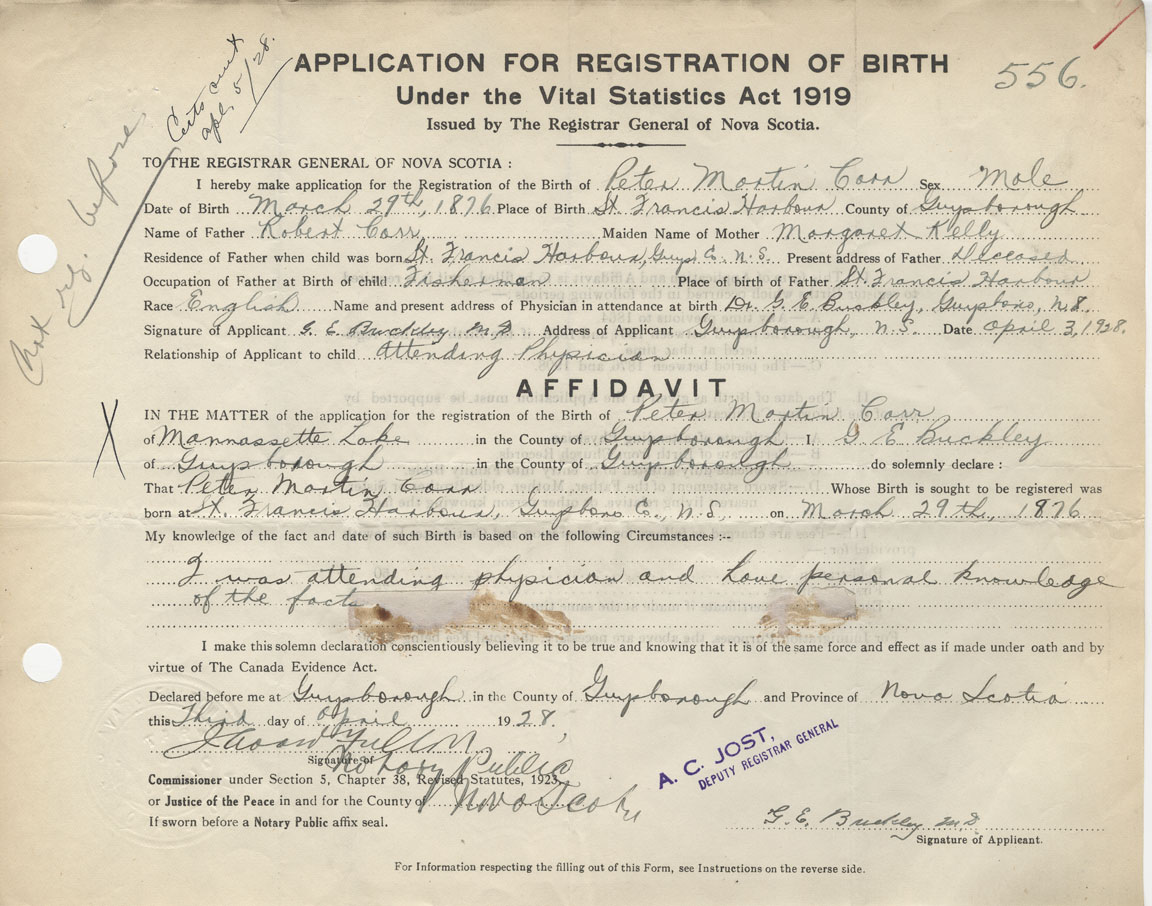 Certs sent
apl. 5/28.
APPLICATION FOR REGISTRATION OF BIRTH
556.
Under the Vital Statistics Act 1919
Issued by The Registrar General of Nova Scotia.
Not reg. before
TO THE REGISTRAR GENERAL OF NOVA SCOTIA :
I hereby make application for the Registration of the Birth of Peter Martin Carr Sex Male
Date of Birth March 29th, 1876 Place of Birth St. Francis Harbour County of Guysborough
Name of Father Robert Carr Maiden Name of Mother Margaret Kelly
Residence of Father when child was born St. Francis Harbour, Guys C. N.S. Present address of Father Deceased
Occupation of Father at Birth of child Fisherman Place of birth of Father St. Francis Harbour
Race English Name and present address of Physician in attendance at birth Dr. G. E. Buckley, Guysboro, N.S.
Signature of Applicant G. E. Buckley M.D. Address of Applicant Guysborough, N.S. Date April 3, 1928.
Relationship of Applicant to child Attending Physician
AFFIDAVIT
IN THE MATTER of the application for the registration of the Birth of Peter Martin Carr
X of Mannassette Lake in the County of Guysborough I. G E Buckley
of Guysborough in the County of Guysborough do solemnly declare :
That Peter Martin Carr Whose Birth is sought to be registered was
born at St. Francis Harbour, Guysboro C., N.S., on March 29th, 1876
My knowledge of the fact and date of such Birth is based on the following Circumstances :--
I was attending physician and have personal knowledge
of the facts
I make this solemn declaration conscientiously believing it to be true and knowing that it is of the same force and effect as if made under oath and by
virtue of The Canada Evidence Act.
Declared before me at Guysborough in the County of Guysborough and Province of Nova Scotia
this Third day of April 1928,
Signature of Notary Public
Commissioner under Section 5, Chapter 38, Revised Statutes, 1923,
or Justice of the Peace in and for the County of Nova Scotia
If sworn before a Notary Public affix seal.
A. C. JOST,
DEPUTY REGISTRAR GENERAL
G. E. Buckley M.D.
Signature of Applicant.
For Information respecting the filling out of this Form, see Instructions on the reverse side.